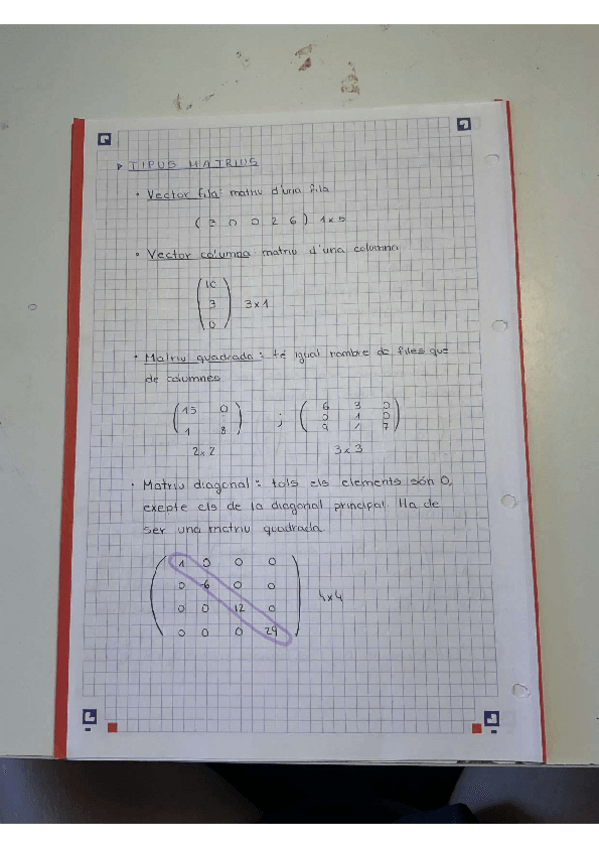 TIPUS MATRIUS
• Vector fila: matriu d'una fila
( 2 0 0 2 6 ) 1x5
• Vector columna matriu d'una columna
10
3 3x1
0
• Matriu quadrada: té igual nombre de files que
de columnes
15 0 ; 6 3 0
1 8
2x2 3x3
• Matriu diagonal: tots els elements són 0,
exepte els de la diagonal principal. Ha de
ser una matriu quadrada.
1 0 0 0
0 6 0 0 4x4
0 0 12 0
0 0 0 29